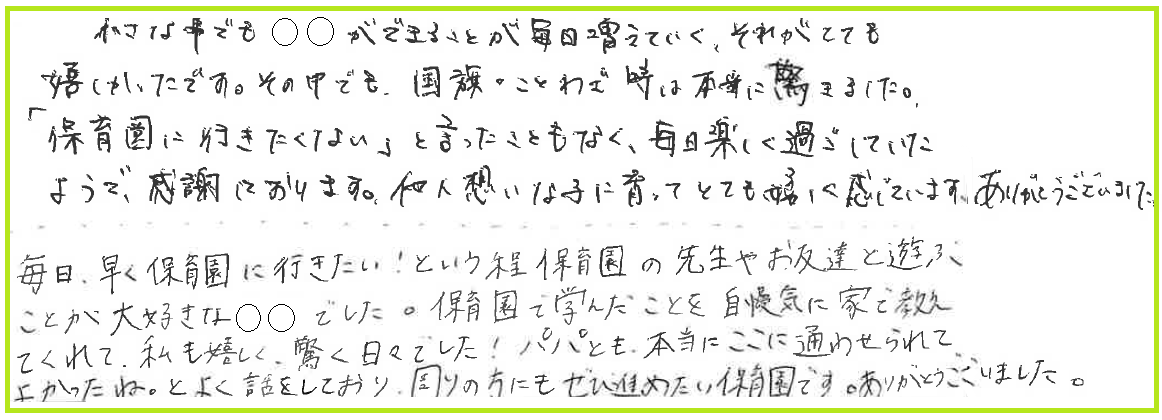 小さな事でも ○○ ができることが毎日増えていく、それがとても
嬉しかったです。その中でも、国旗・ことわざ 時は本当に驚きました。
「保育園に行きたくない」と言ったこともなく、毎日楽しく過ごしていた
ようで、感謝しております。他人想いな子に育ってとても嬉しく感じています。ありがとうございました。
毎日、早く保育園に行きたい!という程保育園の先生やお友達と遊ぶ
ことが大好きな○○でした。保育園で学んだことを自慢気に家で教え
てくれて、私も嬉しく、驚く日々でした!パパとも、本当にここに通わせられて
よかったね。とよく話をしており、周りの方にもぜひ進めたい保育園です。ありがとうございました。